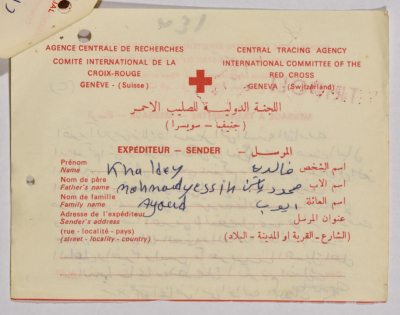 AGENCE CENTRALE DE RECHERCHES
COMITÉ INTERNATIONAL DE LA
CROIX-ROUGE
GENÈVE - (Suisse)
CENTRAL TRACING AGENCY
INTERNATIONAL COMMITTEE OF THE
RED CROSS
GENEVA - (Switzerland)
اللجنة الدولية للصليب الاحمر
(جنيف - سويسرا)
EXPÉDITEUR - SENDER - المرسل
Prénom
Name Khaldey خالدية اسم الشخص
Nom de père
Father's name محمود ياسين اسم الاب
Nom de famille
Family name Ayoub ايوب اسم العائلة
Adresse de l'expéditeur
Sender's address عنوان المرسل
(rue - localité - pays)
(street - locality - country) (الشارع - القرية او المدينة - البلاد)